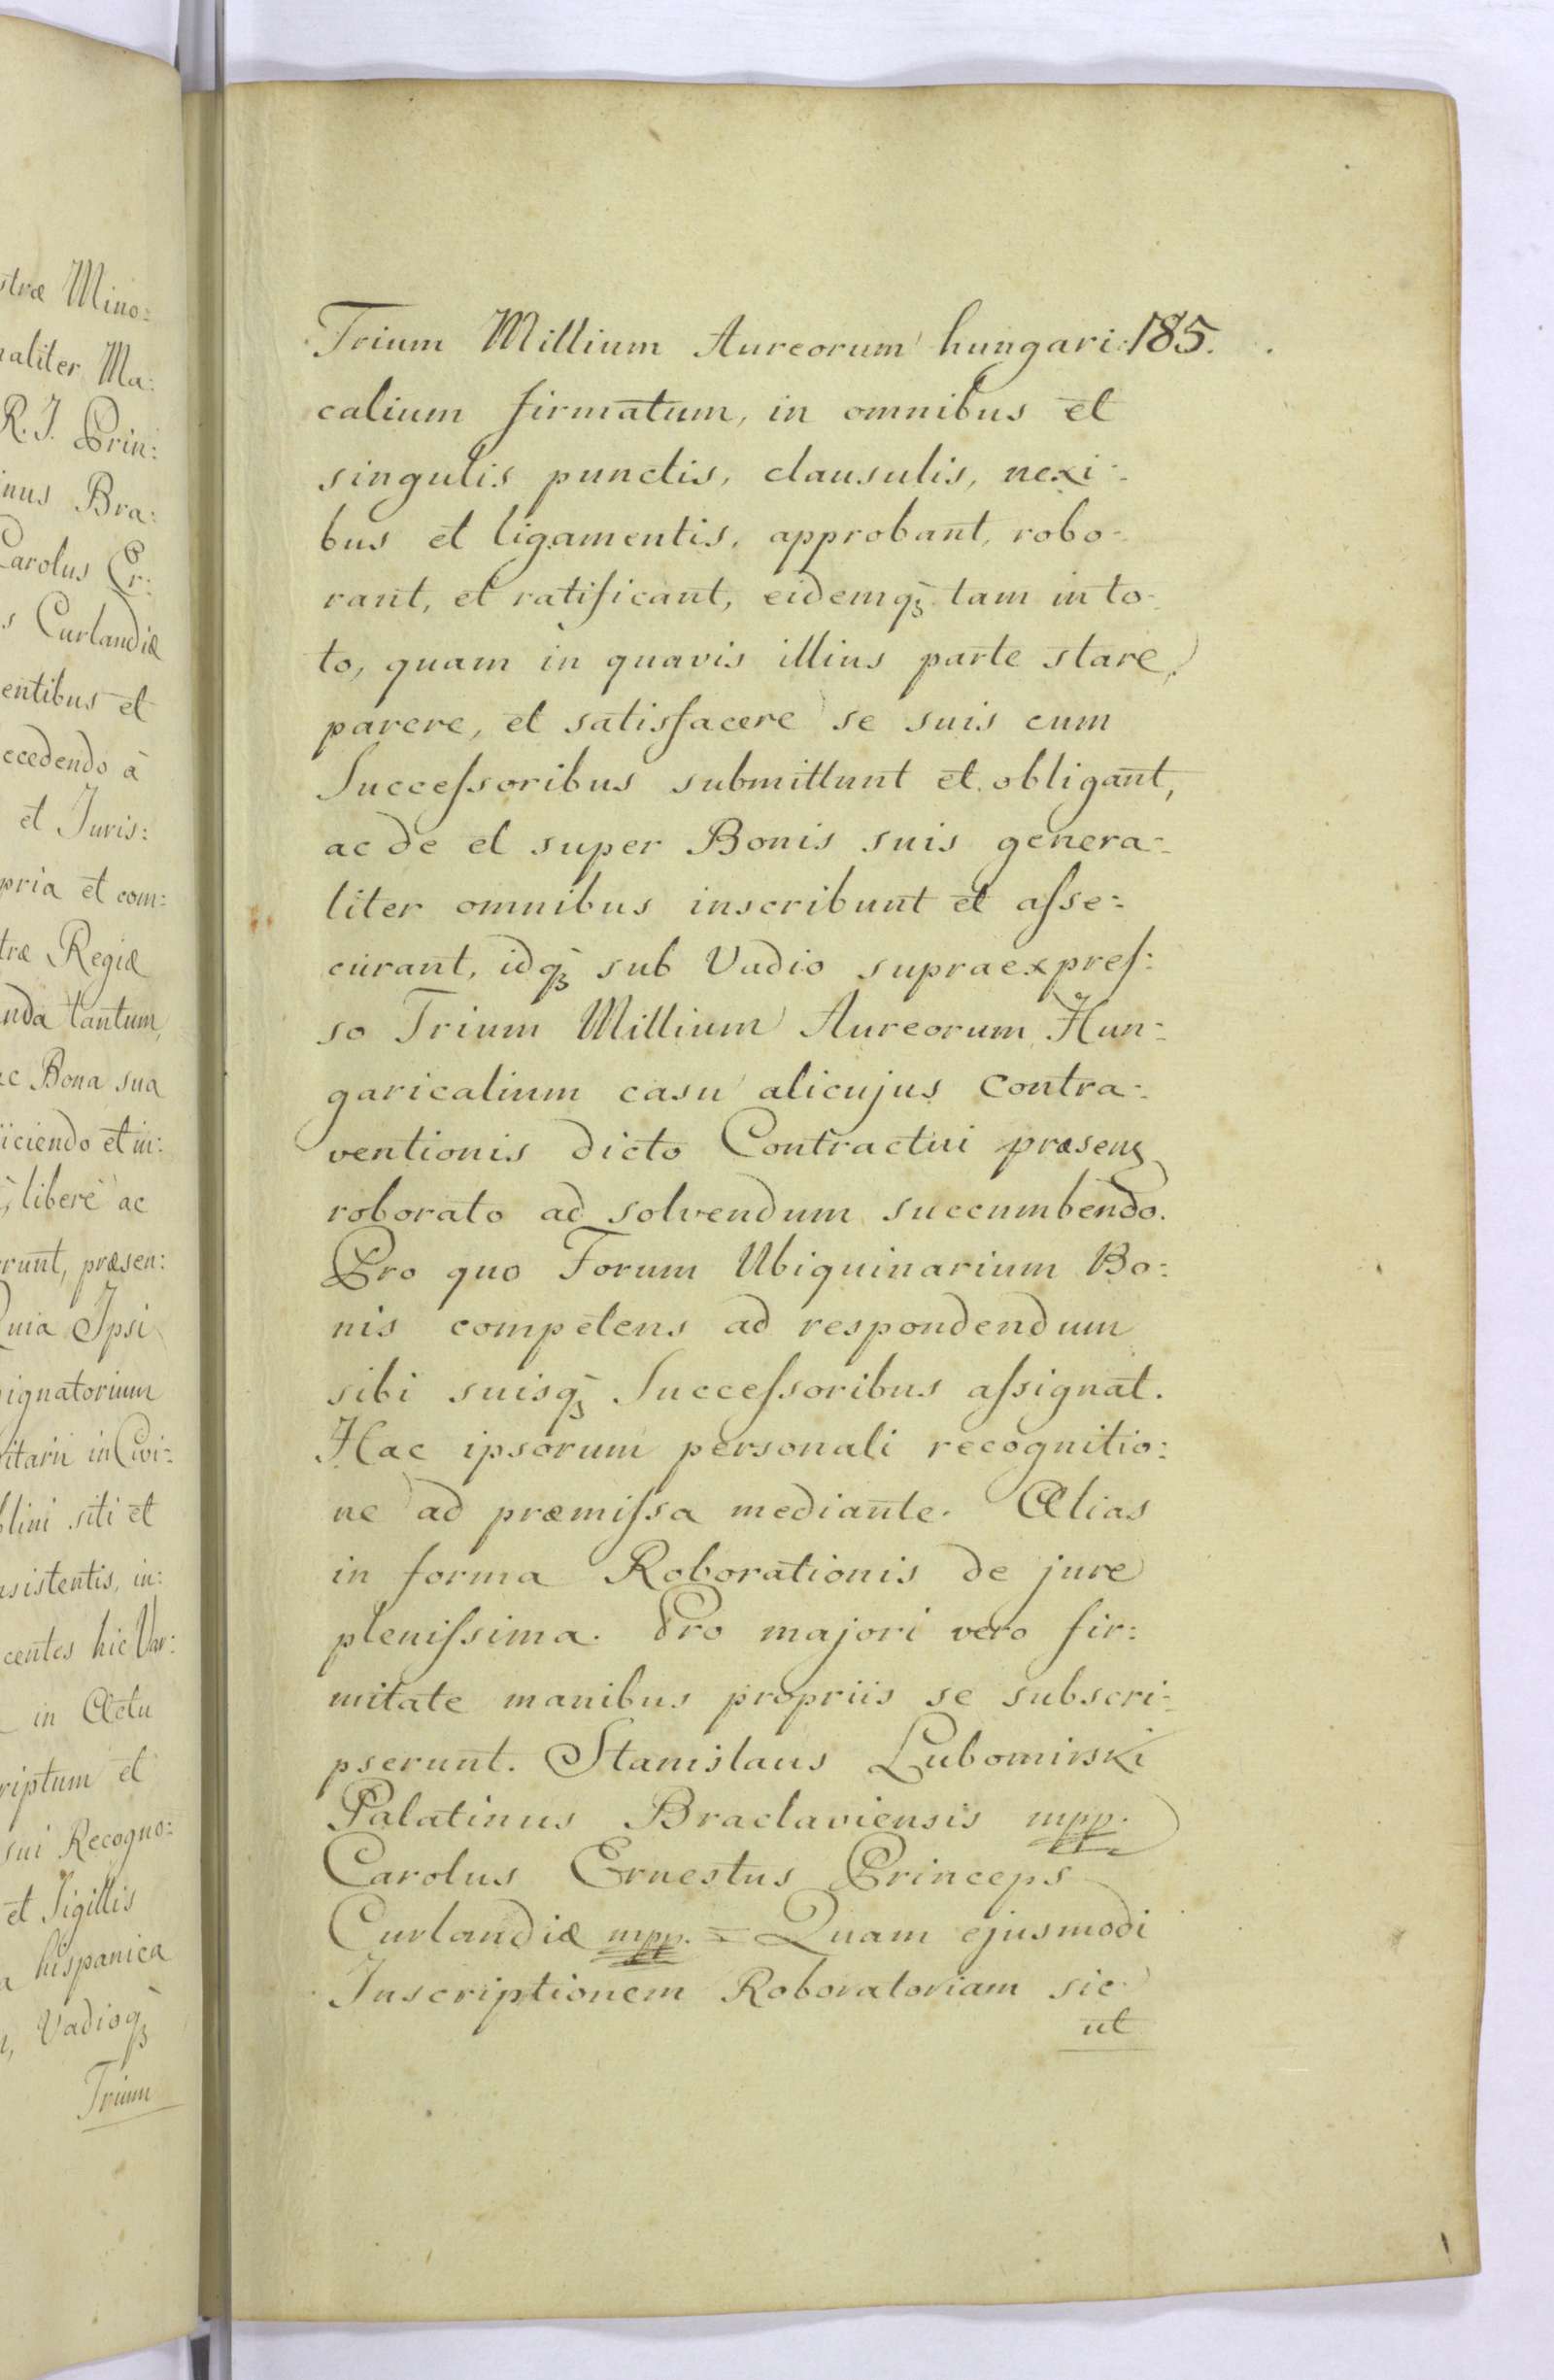 stræ Mino:
naliter Ma:
R. I. Prin:
inus Bra:
Carolus Er:
s Curlandiæ
entibus et
ecedendo à
et Juris:
pria et com:
træ Regiæ
nda tantum,
ac Bona sua
iiciendo et in:
libere ac
runt, præsen:
Quia Ipsi
signatorium
vitarii in Civi:
blini siti et
nsistentis, in:
centes hic Var:
in Actu
riptum et
sui Recogno:
et Sigillis
a hispanica
Vadioqꝫ
Trium
Trium Millium Aureorum hungari: 185.
calium firmatum, in omnibus et
singulis punctis, clausulis, nexi-
bus et ligamentis, approbant, robo-
rant, et ratificant, eidemqꝫ tam in to-
to, quam in quavis illius parte stare,
parere, et satisfacere se suis cum
Succeſsoribus submittunt et obligant,
ac de et super Bonis suis genera-
liter omnibus inscribunt et aſse-
curant, idqꝫ sub Vadio supraexpreſ:
so Trium Millium Aureorum Hun-
garicalium casu alicujus contra-
ventionis dicto Contractui præsenꝫ
roborato ad solvendum succumbendo.
Pro quo Forum Ubiquinarium Bo:
nis competens ad respondendum
sibi suisqꝫ Succeſsoribus aſsignat.
Hac ipsorum personali recognitio:
ne ad præmiſsa mediante. Alias
in forma Roborationis de jure
pleniſsima. Pro majori vero fir:
mitate manibus propriis se subscri-
pserunt. Stanislaus Lubomirski
Palatinus Braclaviensis mpp.
Carolus Ernestus Princeps
Curlandiæ mpp. = Quam ejusmodi
Inscriptionem Roboratoriam sic
ut